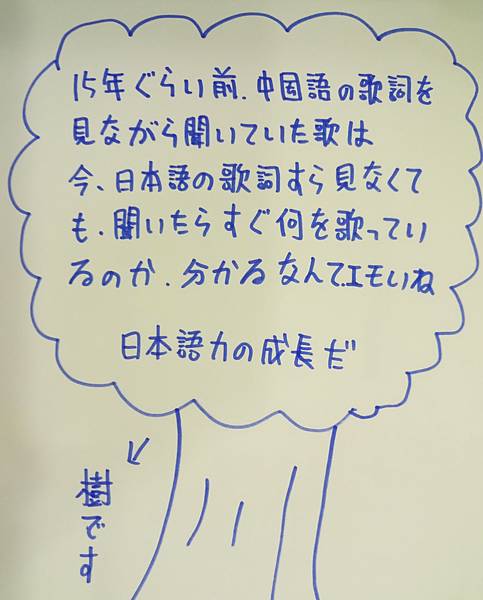 15年ぐらい前、中国語の歌詞を
見ながら聞いていた歌は
今、日本語の歌詞すら見なくて
も、聞いたらすぐ何を歌ってい
るのか、分かるなんて、エモいね
日本語力の成長だ
樹です